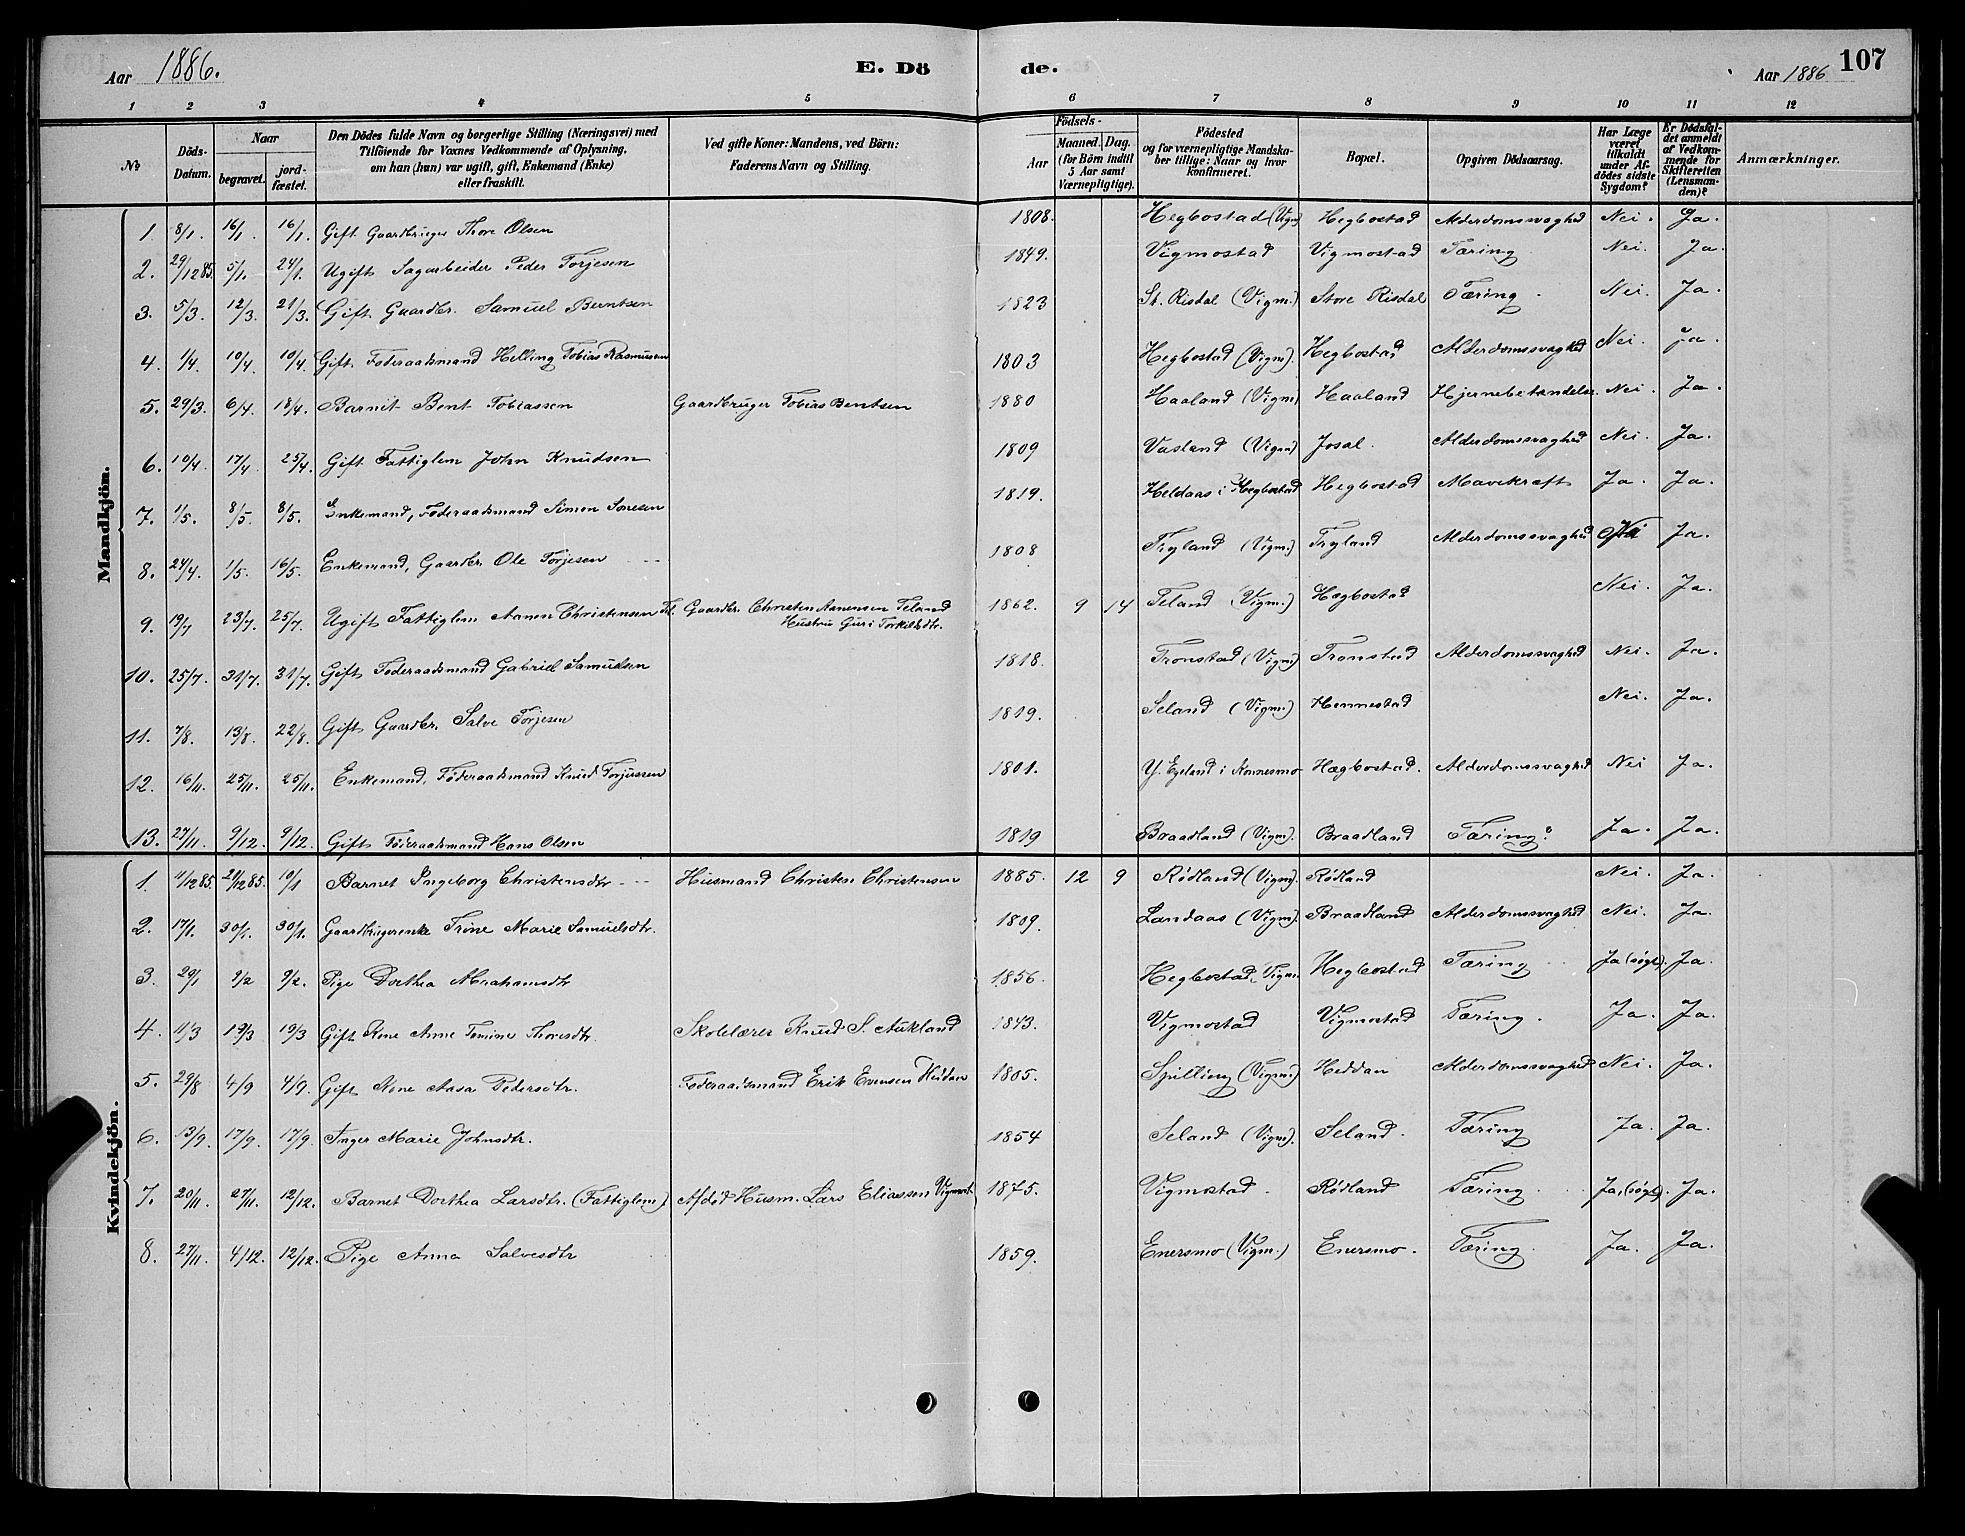 Aar 1886. E. Dö de. Aar 1886 107
1 2 3 4 5 6 7 8 9 10 11 12
No
Döds-Datum.
Naar
begravet.
jordfæstet.
Den Dödes fulde Navn og borgerlige Stilling (Næringsvei) med
Tilföiende for Voxnes Vedkommende af Oplysning,
om han (hun) var ugift, gift, Enkemand (Enke)
eller fraskilt.
Ved gifte Koner: Mandens, ved Börn:
Faderens Navn og Stilling.
Födsels-
Aar
Maaned. Dag.
(for Börn indtil
5 Aar samt
Værnepligtige).
Födested
og for værnepligtige Mandska-
ber tillige: Naar og hvor
konfirmeret.
Bopæl.
Opgiven Dödsaarsag.
Har Læge
været
tilkaldt
under Af-
dödes sidste
Sygdom?
Er Dödsfal-
det anmeldt
af Vedkom-
mende for
Skifteretten
(Lensman-
den)?
Anmærkninger.
Mandkjön.
1. 8/1. 16/1. 16/1. Gift Gaardbruger Thore Olsen 1808. Hegbostad (Vigm) Hegbostad Alderdomssvaghed Nei. Ja.
2. 29/12 85. 5/1. 24/1. Ugift Sagarbeider Peder Torjesen 1849. Vigmostad Vigmostad Tæring Nei. Ja.
3. 5/3. 12/3. 21/3. Gift Gaardbr. Samuel Berntsen 1823 St. Risdal (Vigm.) Store Risdal Tæring. Nei. Ja.
4. 1/4. 10/4. 10/4. Gift Føderaadsmand Helling Tobias Rasmussen 1803 Hegbostad (Vigm). Hegbostad Alderdomssvaghed Nei. Ja.
5. 29/3. 6/4. 18/4. Barnet Bent Tobiassen Gaardbruger Tobias Bentsen 1880 Haaland (Vigm) Haaland Hjernebetændelse. Nei. Ja.
6. 10/4. 17/4. 25/4. Gift Fattiglem John Knudsen 1809 Vasland (Vigm) Josal. Alderdomssvaghed Nei. Ja.
7. 1/5. 8/5. 8/5. Enkemand, Føderaadsmand Simon Sønesen 1819. Heldaas i Hegbostad Hegbostad Mavekræft Ja. Ja.
8. 24/4. 1/5. 16/5. Enkemand, Gaardbr. Ole Torjesen 1808 Tryland (Vigm.) Tryland Alderdomssvaghed Nei Ja.
9. 19/7 23/7. 25/7. Ugift Fattiglem Aanen Christensen Tel. Gaardbr. Christen Aanensen Teland 1862. 9 14 Teland (Vigm.) Hægbostad Nei. Ja.
Hustru Guri Torkildsdtr.
10. 25/7. 31/7. 31/7. Gift Føderaadsmand Gabriel Samuelsen 1818. Tronstad (Vigm) Tronstad Alderdomssvaghed Nei. Ja.
11. 7/8. 13/8. 22/8. Gift Gaardbr. Salve Torjesen 1819. Seland (Vigm.) Hennestad Nei. Ja.
12. 16/11. 25/11. 25/11. Enkemand, Føderaadsmand Knud Torjussen 1801. Y. Egeland i Konnesmo Hægbostad. Alderdomssvaghed Nei Ja.
13. 27/11. 9/12. 9/12. Gift Føderaadsmand Hans Olsen 1819 Braadland (Vigm). Braadland Tæring? Ja. Ja.
Kvindekjön.
1. 11/12 85. 21/12 85. 10/1 Barnet Ingeborg Christensdtr Husmand Christen Christensen 1885. 12 9 Rødland (Vigm). Rødland Nei. Ja.
2. 17/1. 30/1. 30/1. Gaardbrugerenke Trine Marie Samuelsdtr. 1809. Landaas (Vigm). Braadland Alderdomssvaghed Nei. Ja.
3. 29/1 9/2 9/2. Pige Dorthea Abrahamsdtr 1856. Hegbostad, Vigm. Hegbostad Tæring Ja (søgt). Ja.
4. 11/3 19/3 19/3 Gift Kone Anne Tomine Thoresdtr. Skolelærer Knud S. Aukland 1843. Vigmostad Vigmostad Tæring. Ja. Ja.
5. 29/8 4/9 4/9. Gift Kone Aasa Pedersdtr. Føderaadsmand Erik Evensen Heddan 1805. Spilling (Vigm.) Heddan Alderdomssvaghed Nei. Ja.
6. 13/9. 17/9. 17/9. Inger Marie Johnsdtr. 1854 Seland (Vigm). Seland. Tæring Ja. Ja.
7. 20/11. 27/11. 12/12. Barnet Dorthea Larsdtr. (Fattiglem) Afdød Husm. Lars Eliassen Vigmost. 1875. Vigmostad Rødland Tæring. Ja, (søgt). Ja.
8. 27/11. 4/12. 12/12. Pige Anna Salvesdtr 1859. Enersmo (Vigm.) Enersmo. Tæring. Ja. Ja.